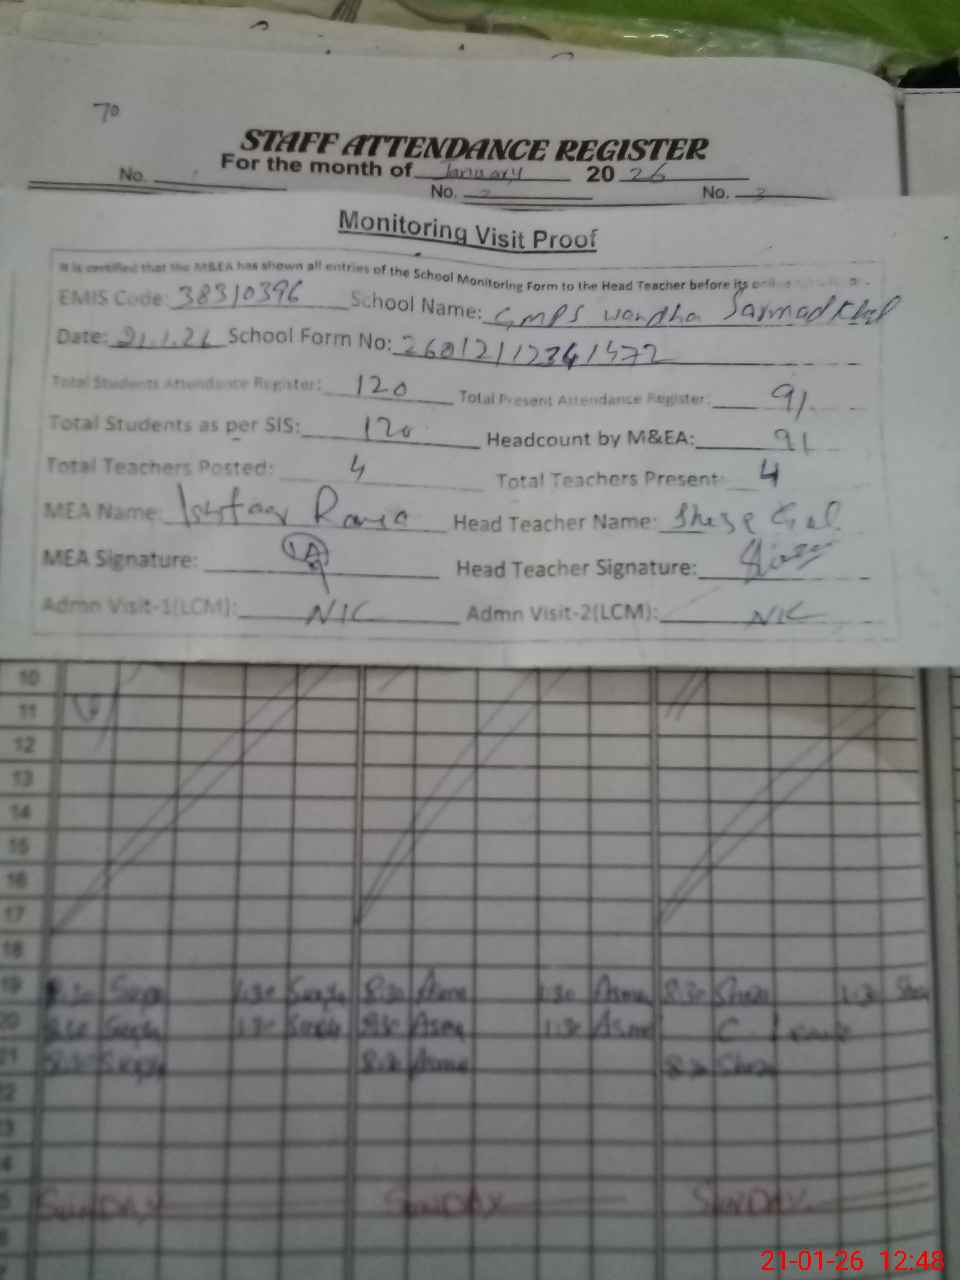 70
STAFF ATTENDANCE REGISTER
For the month of January 2026
No. 1 No. 2 No. 3
Monitoring Visit Proof
It is certified that the M&EA has shown all entries of the School Monitoring Form to the Head Teacher before its
EMIS Code: 38310396 School Name: GMPS Wandha Sarmad Khel
Date: 21.1.26 School Form No:
Total Students Attendance Register: 120 Total Present Attendance Register: 91
Total Students as per SIS: 120 Headcount by M&EA: 91
Total Teachers Posted: 4 Total Teachers Present: 4
MEA Name: Head Teacher Name:
MEA Signature: Head Teacher Signature:
Admn Visit-1(LCM): NIL Admn Visit-2(LCM): NIL
10
11
12
13
14
15
16
17
18
19 8:30 1:30 8:30 Asma 1:30 Asma 8:30 1:30
20 1:30 8:30 Asma 1:30 Asma C leave
21 8:30 8:30 Asma 8:30
SUNDAY SUNDAY SUNDAY
21-01-26 12:48